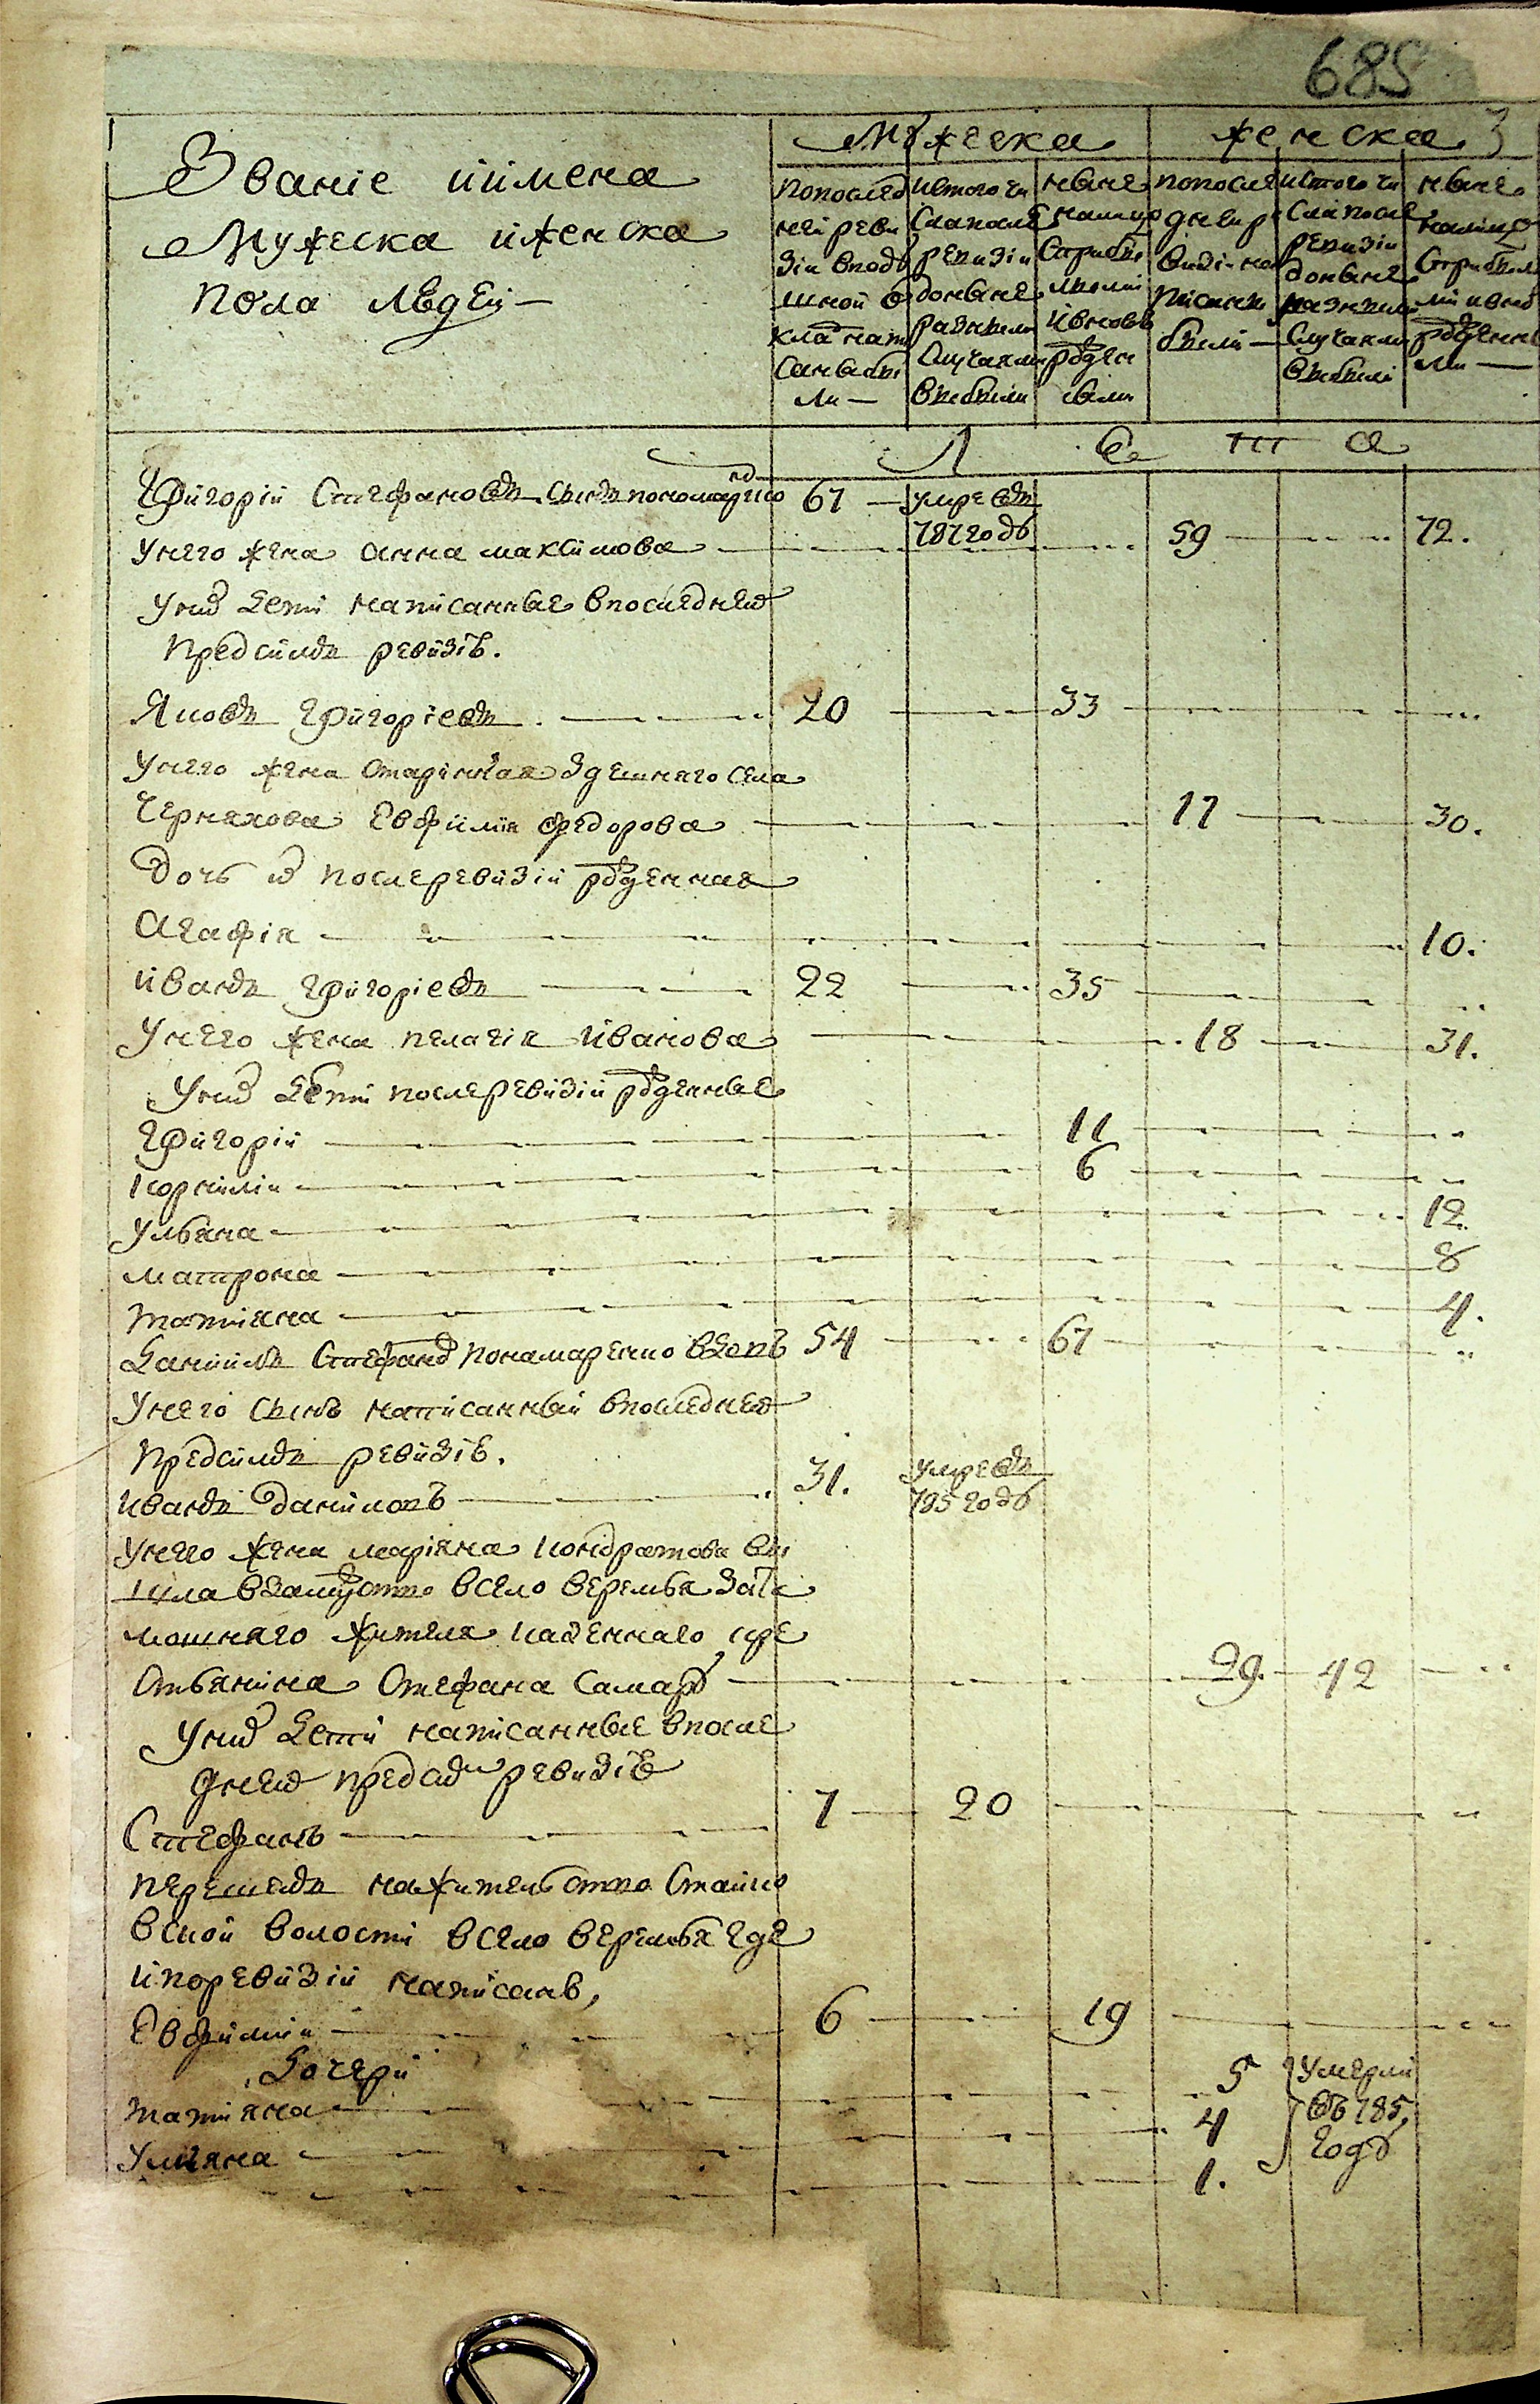 685
3
Званіе иимена
Мужеска иженска
пола людей —
Мужеска
женска
попослед
ней реви
зіи вподу
шной о
кладъ на
санъ бы
ли —
исъ того чи
сла после
ревизіи
донынѣ
разными
случаями
выбыли
нынѣ
налицо
съ прибы
лыми
и вновь
рожден
ными
попосле
дней р
евизіи на
писаны
были —
исъ того чи
сла после
ревизіи
донынѣ
разными
случаями
выбыли
нынѣ
налицо
съ прибы
лыми ивно
рожденны
ми —
Л Ѣ т а
Григорій Стефановъ сынъ пономаренко 67 — умре въ
787 годѣ
унего жена анна максимова — 59 — 72.
уних дети написанные впоследней
предсимъ ревизіи.
Яковъ Григоріевъ — 20 — 33
унего жена старинная здешняго села
Черняхова Евфимія федорова — 17 — 30.
Дочь их послеревизіи рожденная
Агафія — 10.
иванъ Григоріевъ — 22 — 35
унего жена пелагія иванова — 18 — 31.
уних дети послеревизіи рожденные
Григорій — 11
корнилій — 6
ульяна — 12.
матрона — 8
татіяна — 4.
Даніилъ Стефанов пономаренко вдовъ 54 — 67
унего сынъ написанный впоследней
предсимъ ревизіи.
иванъ даниловъ — 31. умре въ
785 годѣ
унего жена маріяна кондратова вы
шла взамужство всело веремья зата
мошняго жителя казенного кре
стьянина Стефана Самару — 29. — 42
уних дети написанные впосле
дней предсим ревизіи
Стефанъ — 7 — 20
перешедъ нажительство Стайко
вской волости всело веремья где
ипоревизіи написанъ,
Евфимій — 6 — 19
Дочери 5 умерли
татіяна — 4 въ 785
уліяна — 1. годѣ